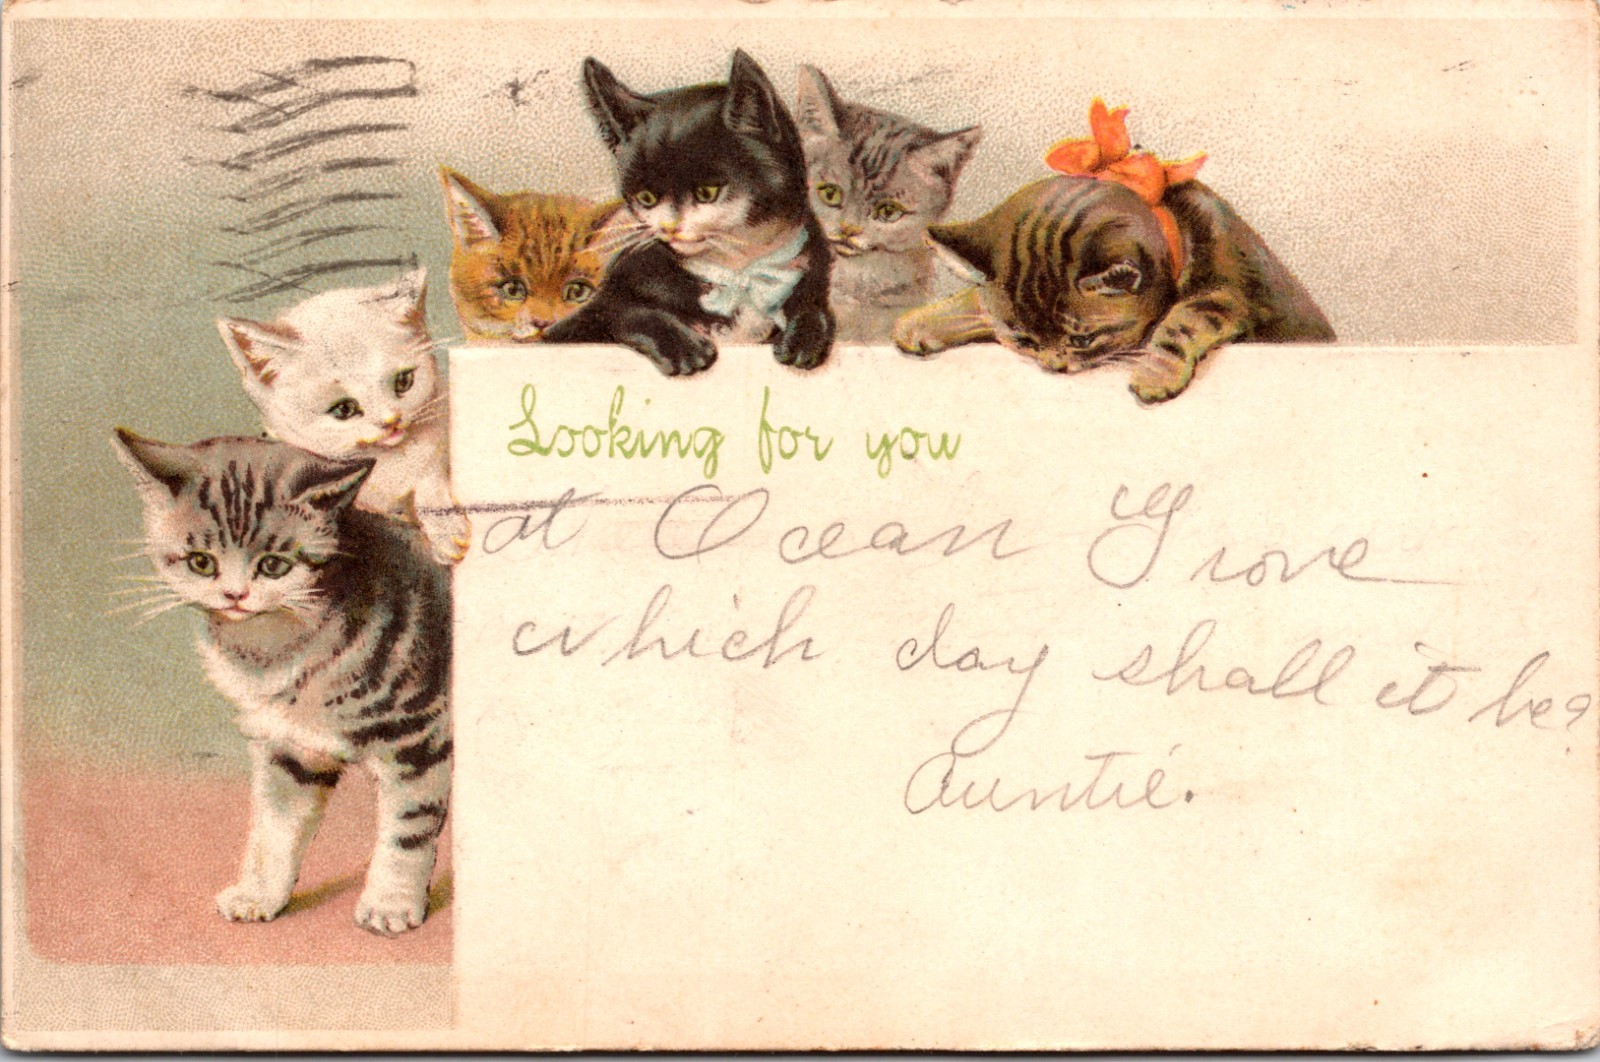 Looking for you
at Ocean Grove
which day shall it be?
Auntie.